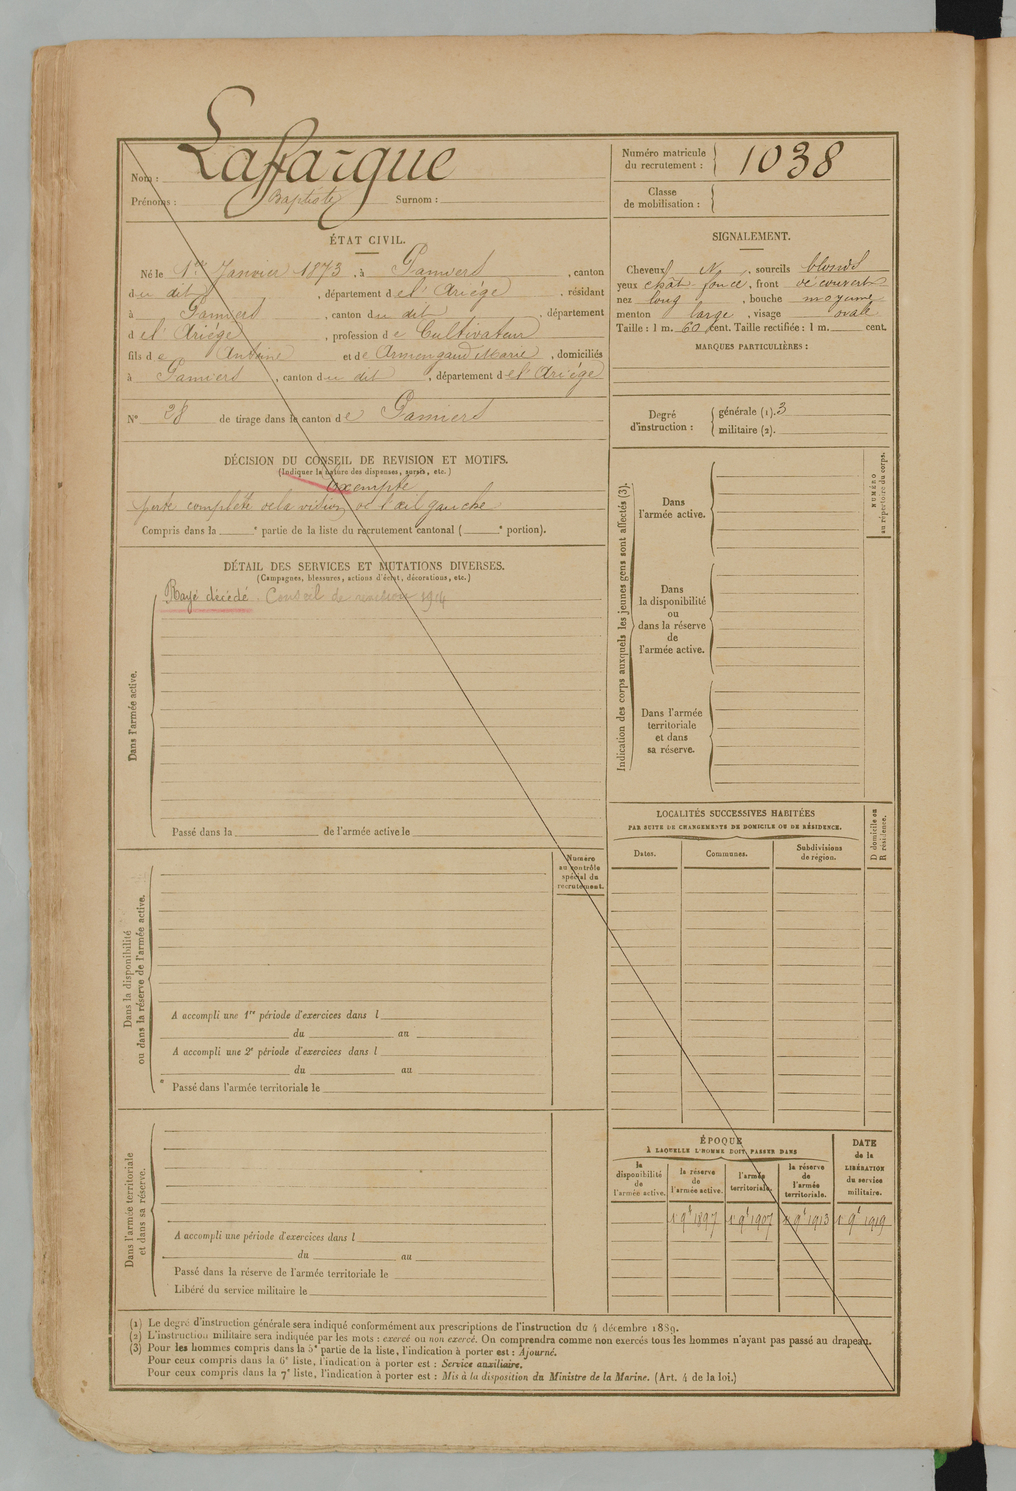 Nom : Laffargue
Prénoms : Baptiste Surnom :
Numéro matricule du recrutement : 1038
Classe de mobilisation :
ÉTAT CIVIL.
Né le 1er Janvier 1873, à Pamiers, canton
du dit, département de l'Ariège, résidant
à Pamiers, canton du dit, département
de l'Ariège, profession de Cultivateur
fils de Antoine et de Armengaud Marie, domiciliés
à Pamiers, canton du dit, département de l'Ariège
N° 28 de tirage dans le canton de Pamiers
SIGNALEMENT.
Cheveux N, sourcils blonds
yeux chât. foncé, front découvert
nez long, bouche moyenne
menton large, visage ovale
Taille : 1 m. 60 cent. Taille rectifiée : 1 m. cent.
MARQUES PARTICULIÈRES :
Degré d'instruction :
générale (1). 3
militaire (2).
DÉCISION DU CONSEIL DE REVISION ET MOTIFS.
(Indiquer la nature des dispenses, sursis, etc.)
Exempté
perte complète de la vision de l'œil gauche
Compris dans la e partie de la liste du recrutement cantonal ( e portion).
DÉTAIL DES SERVICES ET MUTATIONS DIVERSES.
(Campagnes, blessures, actions d'éclat, décorations, etc.)
Rayé décédé. Conseil de révision 1914
Dans l'armée active.
Passé dans la de l'armée active le
Dans la disponibilité
ou dans la réserve de l'armée active.
Numéro
au contrôle
spécial du
recrutement.
A accompli une 1re période d'exercices dans l
du au
A accompli une 2e période d'exercices dans l
du au
* Passé dans l'armée territoriale le
Dans l'armée territoriale
et dans sa réserve.
A accompli une période d'exercices dans l
du au
Passé dans la réserve de l'armée territoriale le
Libéré du service militaire le
Indication des corps auxquels les jeunes gens sont affectés (3).
Dans
l'armée active.
Dans
la disponibilité
ou
dans la réserve
de
l'armée active.
Dans l'armée
territoriale
et dans
sa réserve.
NUMÉRO
au répertoire du corps.
LOCALITÉS SUCCESSIVES HABITÉES
PAR SUITE DE CHANGEMENTS DE DOMICILE OU DE RÉSIDENCE.
Dates. Communes. Subdivisions de région.
D domicile ou
R résidence.
ÉPOQUE
À LAQUELLE L'HOMME DOIT PASSER DANS
la disponibilité de l'armée active.
la réserve de l'armée active.
l'armée territoriale.
la réserve de l'armée territoriale.
DATE de la LIBÉRATION du service militaire.
1 9e 1897 1 9e 1907 1 9e 1913 1 9e 1919
(1) Le degré d'instruction générale sera indiqué conformément aux prescriptions de l'instruction du 4 décembre 1889.
(2) L'instruction militaire sera indiquée par les mots : exercé ou non exercé. On comprendra comme non exercés tous les hommes n'ayant pas passé au drapeau.
(3) Pour les hommes compris dans la 5e partie de la liste, l'indication à porter est : Ajourné.
Pour ceux compris dans la 6e liste, l'indication à porter est : Service auxiliaire.
Pour ceux compris dans la 7e liste, l'indication à porter est : Mis à la disposition du Ministre de la Marine. (Art. 4 de la loi.)